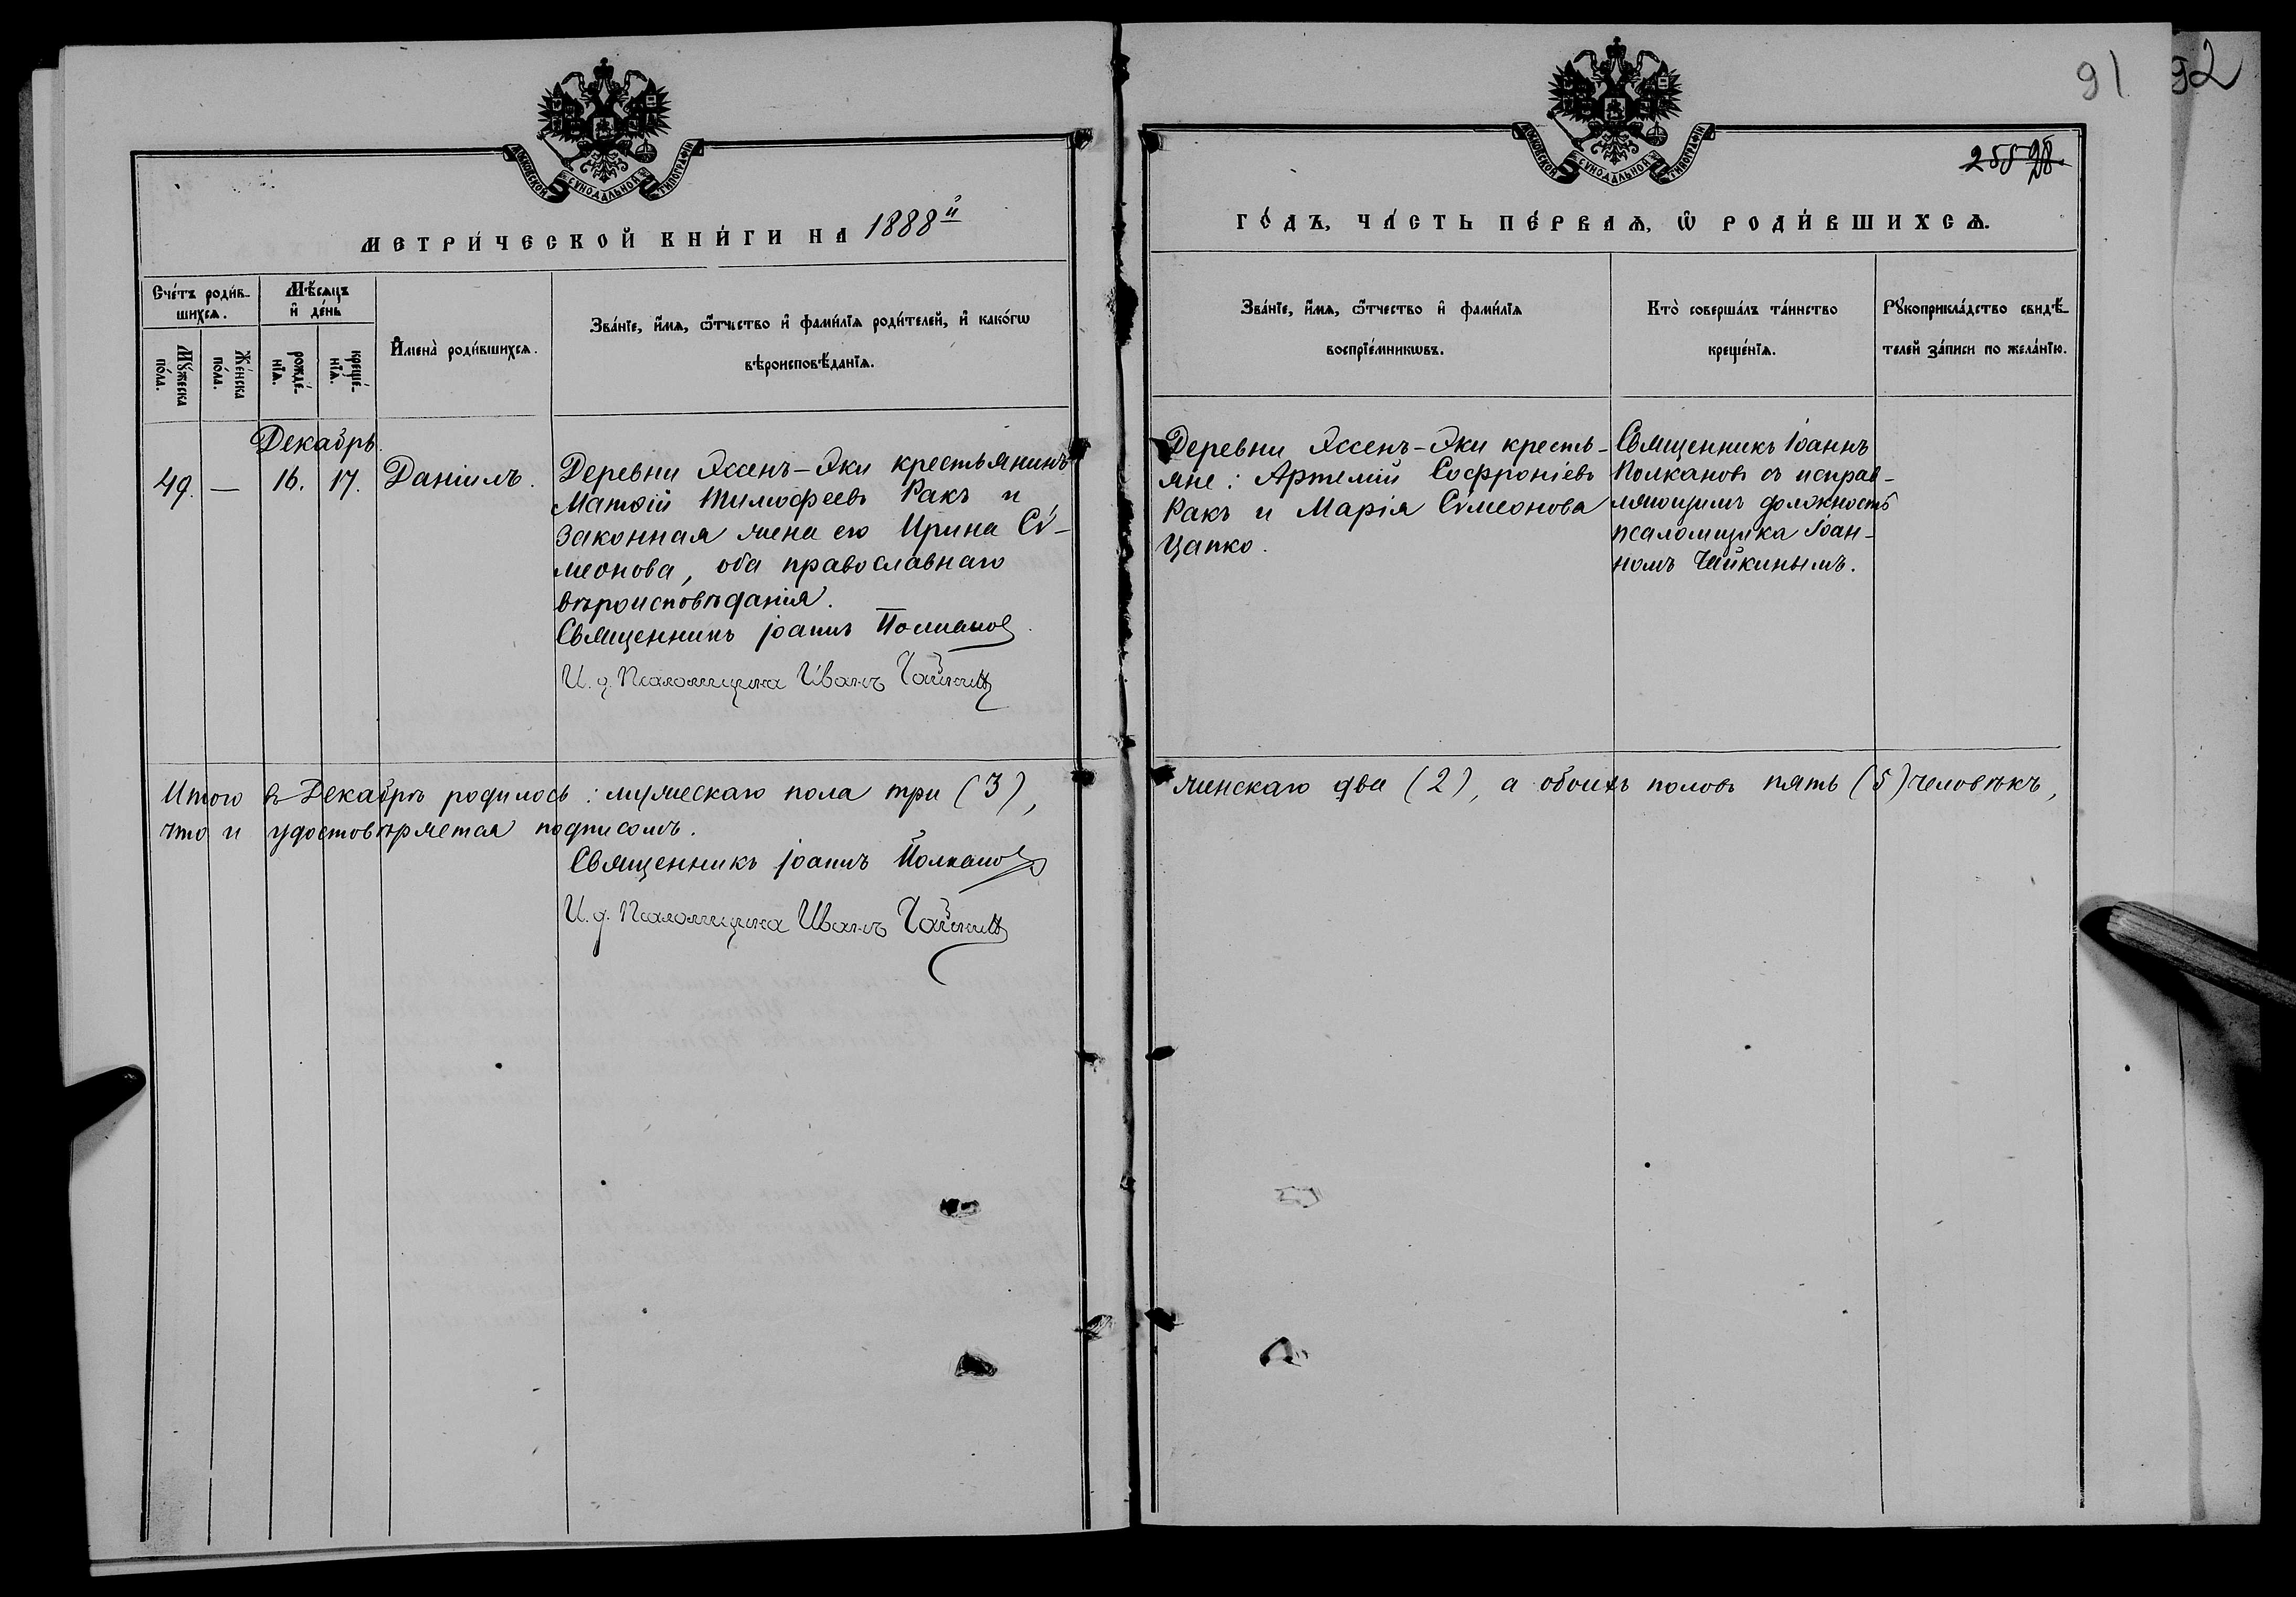 91 92
255 98.
МОСКОВСКОЙ СѴНОДАЛЬНОЙ ТИПОГРАФІИ
МОСКОВСКОЙ СѴНОДАЛЬНОЙ ТИПОГРАФІИ
МЕТРИ́ЧЕСКОЙ КНИ́ГИ НА 1888й
ГО́ДЪ, ЧА́СТЬ ПЕ́РВАѦ, Ѡ҆ РОДИ́ВШИХСѦ.
Сче́тъ роди́в-
шихсѧ.
Мꙋ́жеска по́ла.
Же́нска по́ла.
Мѣ́сѧцъ
и҆ де́нь
рожде́-нїѧ.
креще́-нїѧ.
И҆мена̀ роди́вшихсѧ.
Зва́нїе, и҆́мѧ, ѻ҆́тчество и҆ фами́лїѧ роди́телей, и҆ како́гѡ
вѣроисповѣ́данїѧ.
Зва́нїе, и҆́мѧ, ѻ҆́тчество и҆ фами́лїѧ
воспрїе́мникѡвъ.
Кто̀ соверша́лъ та́инство
креще́нїѧ.
Рꙋкоприкла́дство свидѣ́-
телей за́писи по жела́нїю.
Декабрь.
49. — 16. 17. Даніилъ.
Деревни Яссенъ-Яки крестьянинъ
Матѳій Тимофеевъ Ракъ и
законная жена его Ирина Сѵ-
меонова, оба православнаго
вѣроисповѣданія.
Священникъ Іоаннъ Полкановъ.
И. д. Псаломщика Иванъ Чайкинъ
Деревни Яссенъ-Яки кресть-
яне: Артемій Софроніевъ
Ракъ и Марія Сѵмеонова
Цапко.
Священникъ Іоаннъ
Полкановъ съ исправ-
ляющимъ должность
псаломщика Іоан-
номъ Чайкинымъ.
Итого въ Декабрѣ родилось: мужескаго пола три (3),
женскаго два (2), а обоихъ половъ пять (5) человѣкъ,
что и удостовѣряется подписомъ.
Священникъ Іоаннъ Полкановъ
И. д. Псаломщика Иванъ Чайкинъ